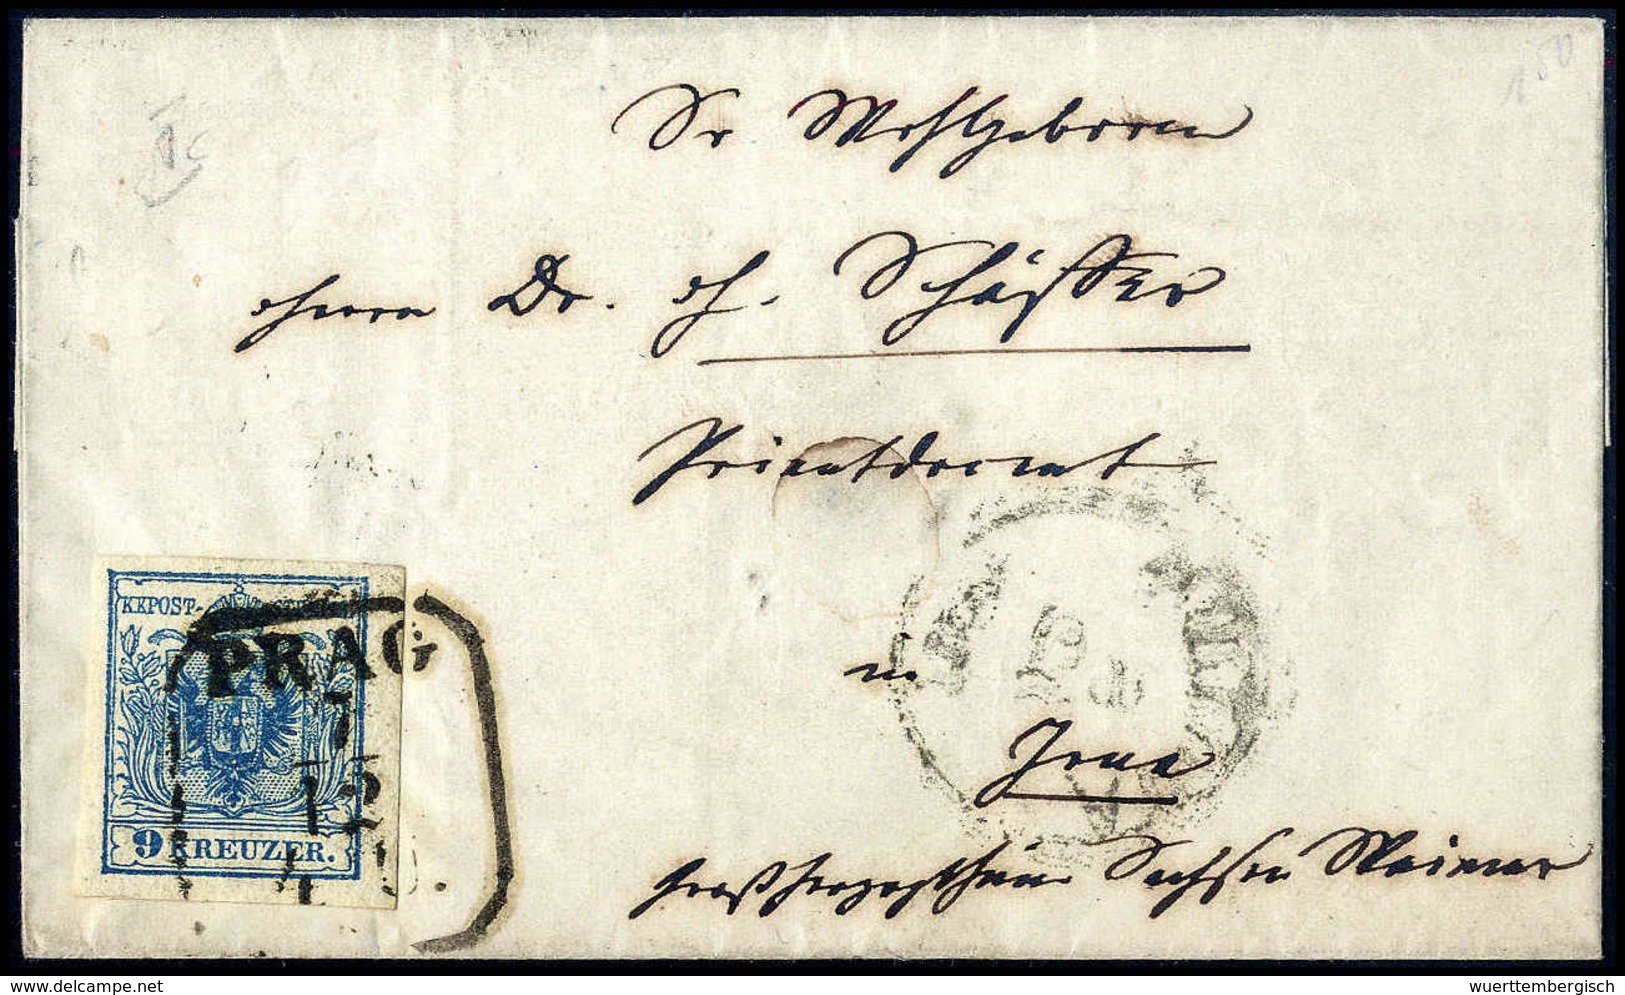 180
Sr Wohlgeboren
Herrn Dr. H. Schäffer
Privatdocent
in
Jena
Großherzogthum Sachsen Weimar
KKPOST-
PRAG
7
12
9 KREUZER.
delcampe.net
wuerttembergisch